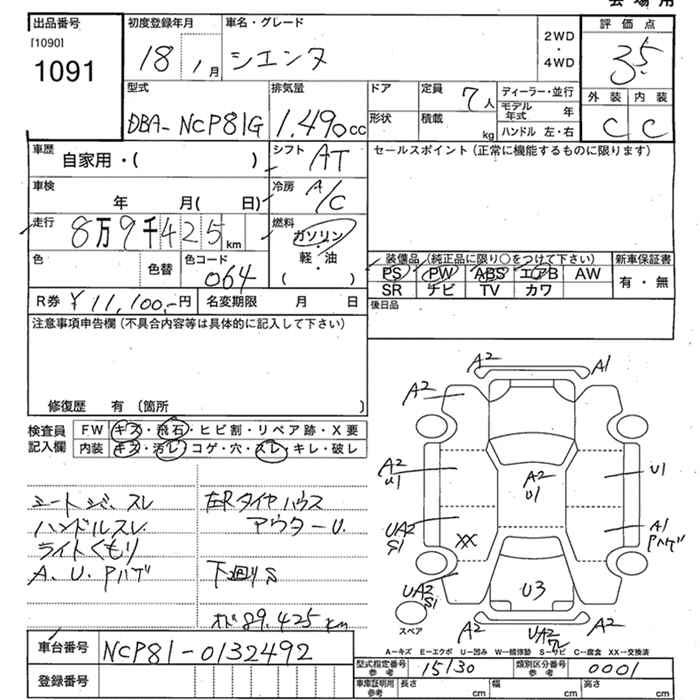 会場用
出品番号 初度登録年月 車名・グレード 評価点
[1090]
1091
18 1月 シエンタ 2WD・4WD 3.5
外装 内装
C C
型式 排気量 ドア 定員 7人 ディーラー・並行
DBA-NCP81G 1,490cc 形状 積載 kg モデル年式 年
ハンドル 左・右
車歴 自家用・( ) シフト AT セールスポイント(正常に機能するものに限ります)
車検 年 月( 日) 冷房 A/C
走行 8万9千425km 燃料 ガソリン・軽・油
( )
色 色替 色コード 064
装備品(純正品に限り○をつけて下さい) 新車保証書
PS PW ABS エアB AW 有・無
SR ナビ TV カワ
R券 ¥11,100-円 名変期限 月 日 後日品
注意事項申告欄(不具合内容等は具体的に記入して下さい)
修復歴 有 (箇所
検査員記入欄 FW キズ・飛石・ヒビ割・リペア跡・X要
内装 キズ・汚レ・コゲ・穴・スレ・キレ・破レ
シートジ、スレ 左Rタイヤハウス
ハンドルスレ アウターU.
ライトくもり
A.U.Pハゲ 下回りS
89.425km
A2 A1
A2
A2 U1 A2 U1 U1
UA2 S1 XX A1 Pハゲ
UA2 S1 U3
スペア
A2 UA2 A2
A-キズ E-エクボ U-凹み W-補修跡 S-サビ C-腐食 XX-交換済
車台番号 NCP81-0132492
型式指定番号 参考 15130 類別区分番号 参考 0001
登録番号 車庫証明用 参考 長さ cm 幅 cm 高さ cm